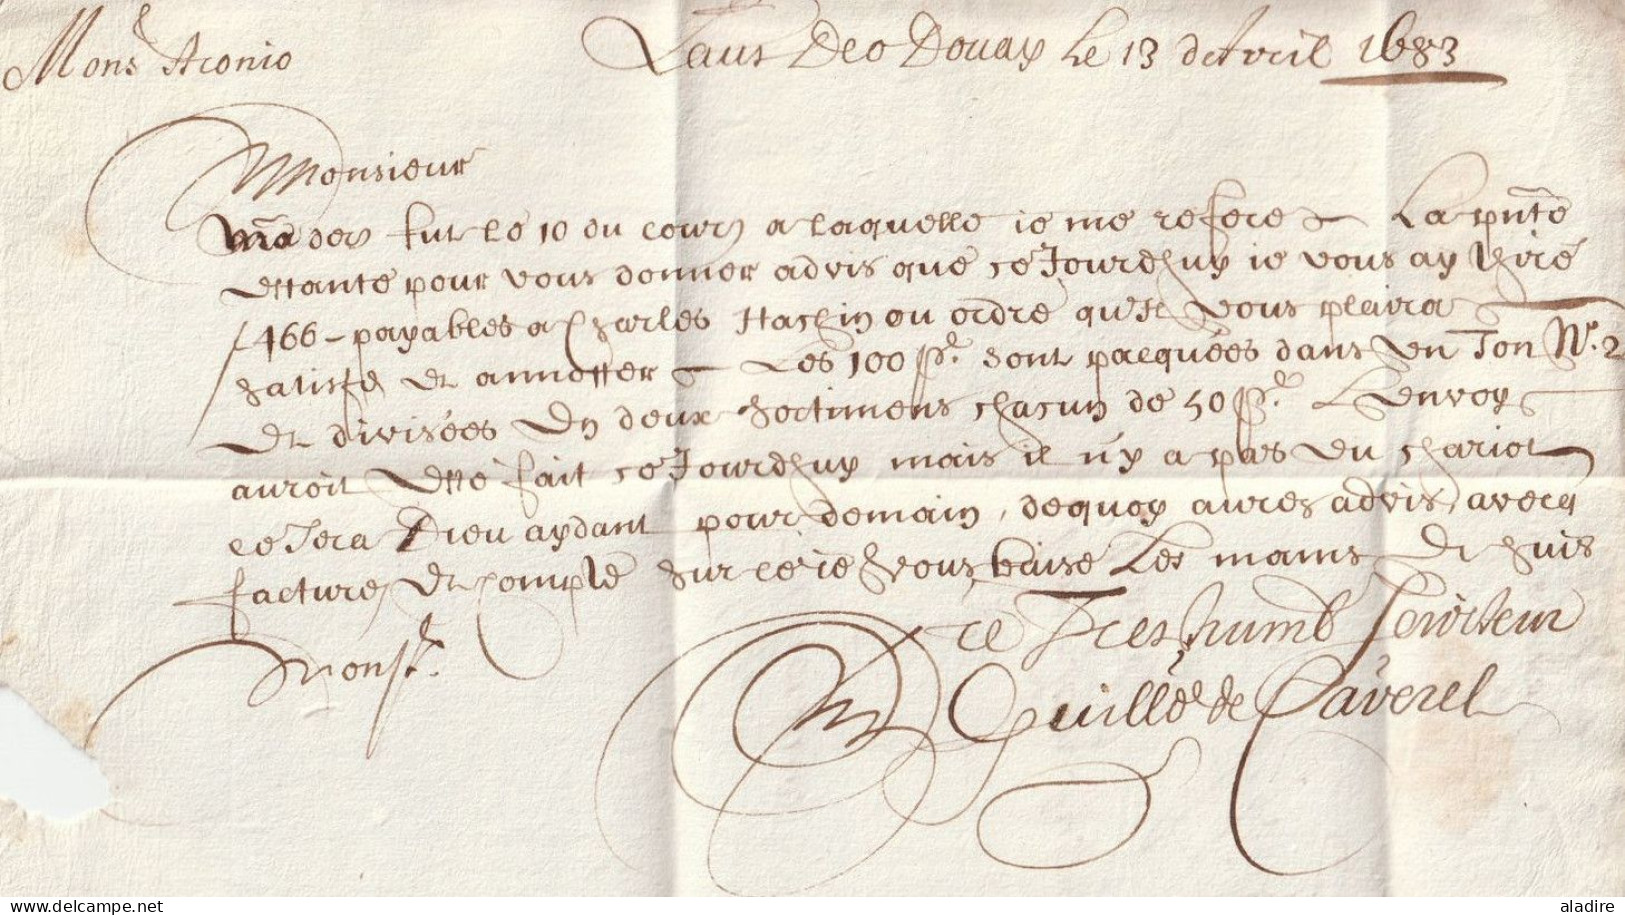 Mons.r Aronio Laus Deo Douay Le 13 d'Avril 1683
Monsieur
Ma der.e fut le 10 du cour.t a laquelle ie me refere La pnte
estante pour vous donner advis que ce Jourdhuy ie vous ay thiré
ƒ 466 - payables a Charles Hachin ou ordre qu'il vous plaira
satisfe. et annotter Les 100 p.s sont pacquées dans un Ton N.r 2
et divisées en deux sortimens chacun de 50 p.s L'envoy
auroit esté fait ce Jourdhuy mais il n'y a pas eu chariot
ce sera Dieu aydant pour demain, dequoy aures advis avecq
facture et compte sur ce ie vous baise Les mains et suis
Mons.r
re Tres humb Serviteur
Guille de Caverel
www.delcampe.net aladire